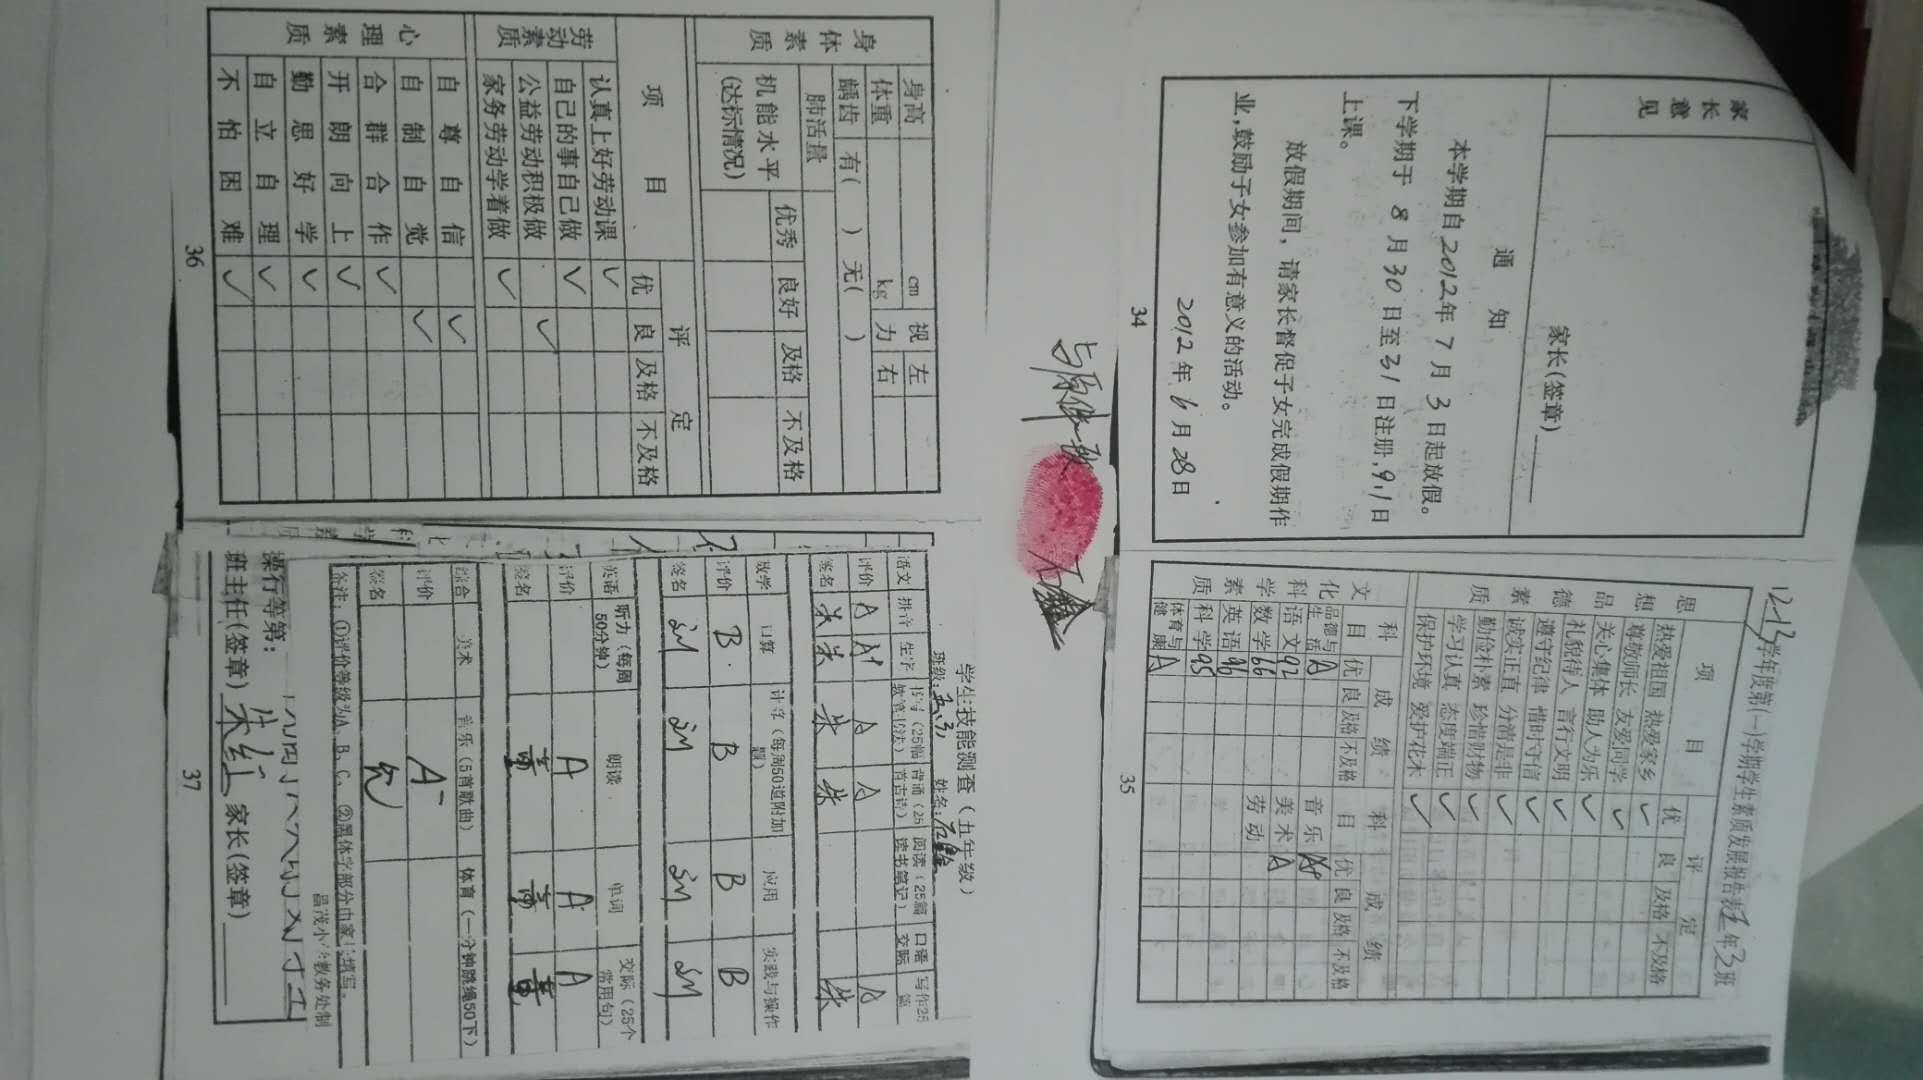 家长意见
家长(签章)
通知
本学期自2012年7月3日起放假。
下学期于8月30日至31日注册,9.1日
上课。
放假期间，请家长督促子女完成假期作
业,鼓励子女参加有意义的活动。
2012年6月28日
34
与原件一致
石鑫
12-13学年度第(一)学期学生素质发展报告表 年3班
项目 评定
优 良 及格 不及格
思想品德素质
热爱祖国 热爱家乡 ✓
尊敬师长 友爱同学 ✓
关心集体 助人为乐 ✓
礼貌待人 言行文明 ✓
遵守纪律 惜时守信 ✓
诚实正直 分清是非 ✓
勤俭朴素 珍惜财物 ✓
学习认真 态度端正 ✓
保护环境 爱护花木 ✓
文化科学素质
科目 成绩 科目 成绩
优 良 及格 不及格 优 良 及格 不及格
品德与生活 A 音乐
语文 92 美术 A
数学 66 劳动
英语 96
科学 95
体育与健康 A
35
身体素质
身高 cm 视力 左
体重 kg 右
龋齿 有( ) 无( )
肺活量
机能水平(达标情况) 优秀 良好 及格 不及格
项目 评定
优 良 及格 不及格
劳动素质
认真上好劳动课 ✓
自己的事自己做 ✓
公益劳动积极做 ✓
家务劳动学着做 ✓
心理素质
自尊自信 ✓
自制自觉 ✓
合群合作 ✓
开朗向上 ✓
勤思好学 ✓
自立自理 ✓
不怕困难 ✓
36
学生技能测查（五年级）
班级: 姓名:石鑫
语文 拼音 生字 背诵(25首古诗) 阅读(25篇读书笔记) 口语交际 写作25篇
评价 A A+ A A A
签名 朱 朱 朱 朱 朱
数学 口算 计算(每周50道附加题) 应用 实践与操作
评价 B B B B
签名
英语 听力(每周50分钟) 朗读 单词 交际(25个常用句)
评价 A A A
签名 黄 黄 黄
综合 美术 音乐(5首歌曲) 体育(一分钟跳绳50下)
评价 A-
签名
备注：①评价等级为A、B、C、②黑体字部分由家长填写。
昌茂小学教务处制
操行等第：
班主任(签章) 朱红 家长(签章)
37